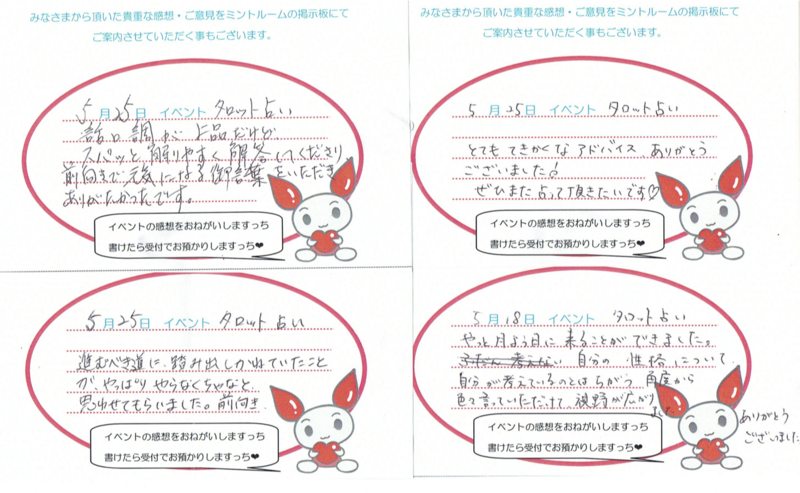 みなさまから頂いた貴重な感想・ご意見をミントルームの掲示板にて
ご案内させていただく事もございます。
5月25日 イベント タロット占い
話口調が上品だけど
スパッと解りやすく解答してくださり、
前向きで元気になる御言葉をいただき
ありがたかったです。
イベントの感想をおねがいしますっち
書けたら受付でお預かりしますっち♥
みなさまから頂いた貴重な感想・ご意見をミントルームの掲示板にて
ご案内させていただく事もございます。
5月25日 イベント タロット占い
とてもてきかくなアドバイス、ありがとう
ございました!
ぜひまた占って頂きたいです♡
イベントの感想をおねがいしますっち
書けたら受付でお預かりしますっち♥
5月25日 イベント タロット占い
進むべき道に、踏み出しかねていたこと
が、やっぱりやらなくちゃなと
思わせてもらいました。前向き
イベントの感想をおねがいしますっち
書けたら受付でお預かりしますっち♥
5月18日 イベント タロット占い
やっと月よう日に来ることができました。
自分の性格について
自分が考えているのとはちがう角度から
色々言っていただけて、視野が広がり
ました
ありがとう
ございました
イベントの感想をおねがいしますっち
書けたら受付でお預かりしますっち♥